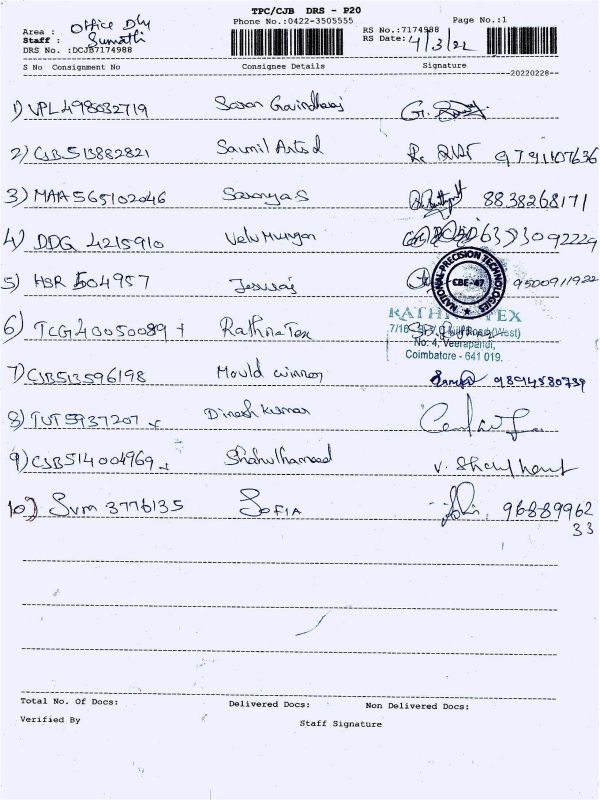 TPC/CJB DRS - P20
Area : Office Dly Phone No.:0422-3505555 RS No.:7174988 Page No.:1
Staff : Sumathi RS Date: 4/3/22
DRS No. :DCJB7174988
S No Consignment No Consignee Details Signature
20220228
1) VPL498032719 Saran Govindharaj
2) CJB513882821 Saumil Arts d 9791107636
3) MAA565102046 Saranya S 8838268171
4) DDG 4215910 Velu Murugan 6393092229
5) HSR 504957 Jesuraj 9500911922
NATIONAL PRECISION TECHNOLOGIES
CBE-47
6) TCG40050089 + Rathna Tex
RATHNA TEX
No: 4, Veerapandi,
Coimbatore - 641 019.
7) CJB513596198 Mould winner 98914580739
8) TUT5937207 Dinesh Kumar
9) CJB514004969 Shahulhameed
10) SVM 3776135 SOFIA 96889962
33
Total No. Of Docs: Delivered Docs: Non Delivered Docs:
Verified By Staff Signature